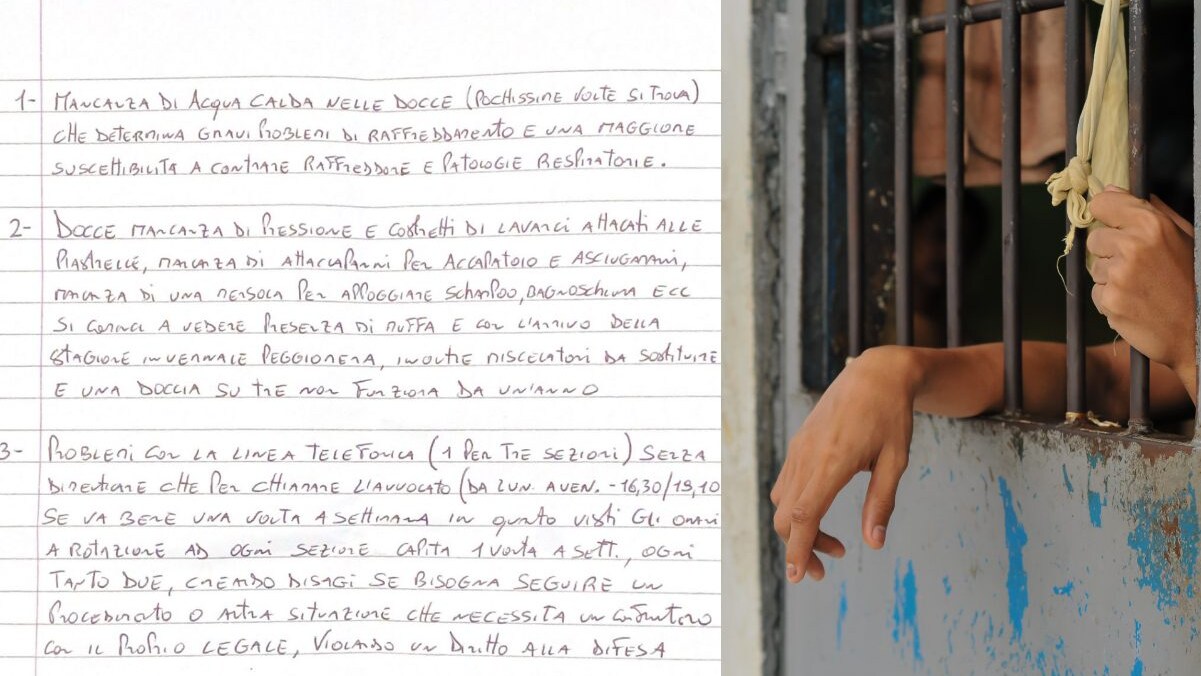 1- MANCANZA DI ACQUA CALDA NELLE DOCCE (POCHISSIME VOLTE SI TROVA)
CHE DETERMINA GRAVI PROBLEMI DI RAFFREDDAMENTO E UNA MAGGIORE
SUSCETTIBILITÀ A CONTRARRE RAFFREDDORE E PATOLOGIE RESPIRATORIE.
2- DOCCE MANCANZA DI PRESSIONE E COSTRETTI DI LAVARCI ATTACATI ALLE
PIASTRELLE, MANCANZA DI ATTACCAPANNI PER ACCAPATOIO E ASCIUGAMANI,
MANCANZA DI UNA MENSOLA PER APPOGGIARE SCHAMPOO, BAGNOSCHIUMA ECC
SI COMINCI A VEDERE PRESENZA DI MUFFA E CON L'ARRIVO DELLA
STAGIONE INVERNALE PEGGIORERA, INOLTRE MISCELATORI DA SOSTITUIRE
E UNA DOCCIA SU TRE NON FUNZIONA DA UN'ANNO
3- PROBLEMI CON LA LINEA TELEFONICA (1 PER TRE SEZIONI) SENZA
DIMENTICARE CHE PER CHIAMARE L'AVVOCATO (DA LUN. A VEN. - 16,30/19,10
SE VA BENE UNA VOLTA A SETTIMANA IN QUANTO VISTI GLI ORARI
A ROTAZIONE AD OGNI SEZIONE CAPITA 1 VOLTA A SETT., OGNI
TANTO DUE, CREANDO DISAGI SE BISOGNA SEGUIRE UN
PROCEDIMENTO O ALTRA SITUAZIONE CHE NECESSITA UN CONFRONTO
CON IL PROPRIO LEGALE, VIOLANDO UN DIRITTO ALLA DIFESA